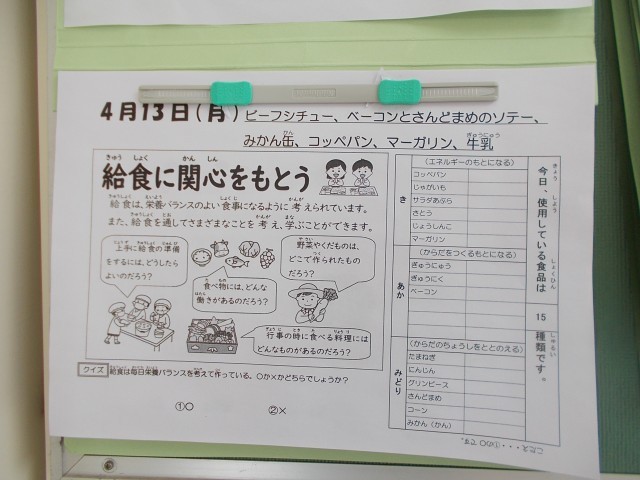 4月13日(月) ビーフシチュー、ベーコンとさんどまめのソテー、
みかん缶、コッペパン、マーガリン、牛乳
給食に関心をもとう
給食は、栄養バランスのよい食事になるように考えられています。
また、給食を通してさまざまなことを考え、学ぶことができます。
上手に給食の準備
をするには、どうしたら
よいのだろう?
食べ物には、どんな
働きがあるのだろう?
野菜やくだものは、
どこで作られたもの
だろう?
行事の時に食べる料理には
どんなものがあるのだろう?
クイズ 給食は毎日栄養バランスを考えて作っている。○か×かどちらでしょうか?
①○ ②×
今日、使用している食品は 15 種類です。
き
(エネルギーのもとになる)
コッペパン
じゃがいも
サラダあぶら
さとう
じょうしんこ
マーガリン
あか
(からだをつくるもとになる)
ぎゅうにゅう
ぎゅうにく
ベーコン
みどり
(からだのちょうしをととのえる)
たまねぎ
にんじん
グリンピース
さんどまめ
コーン
みかん(かん)
こたえ・・・①の○です。